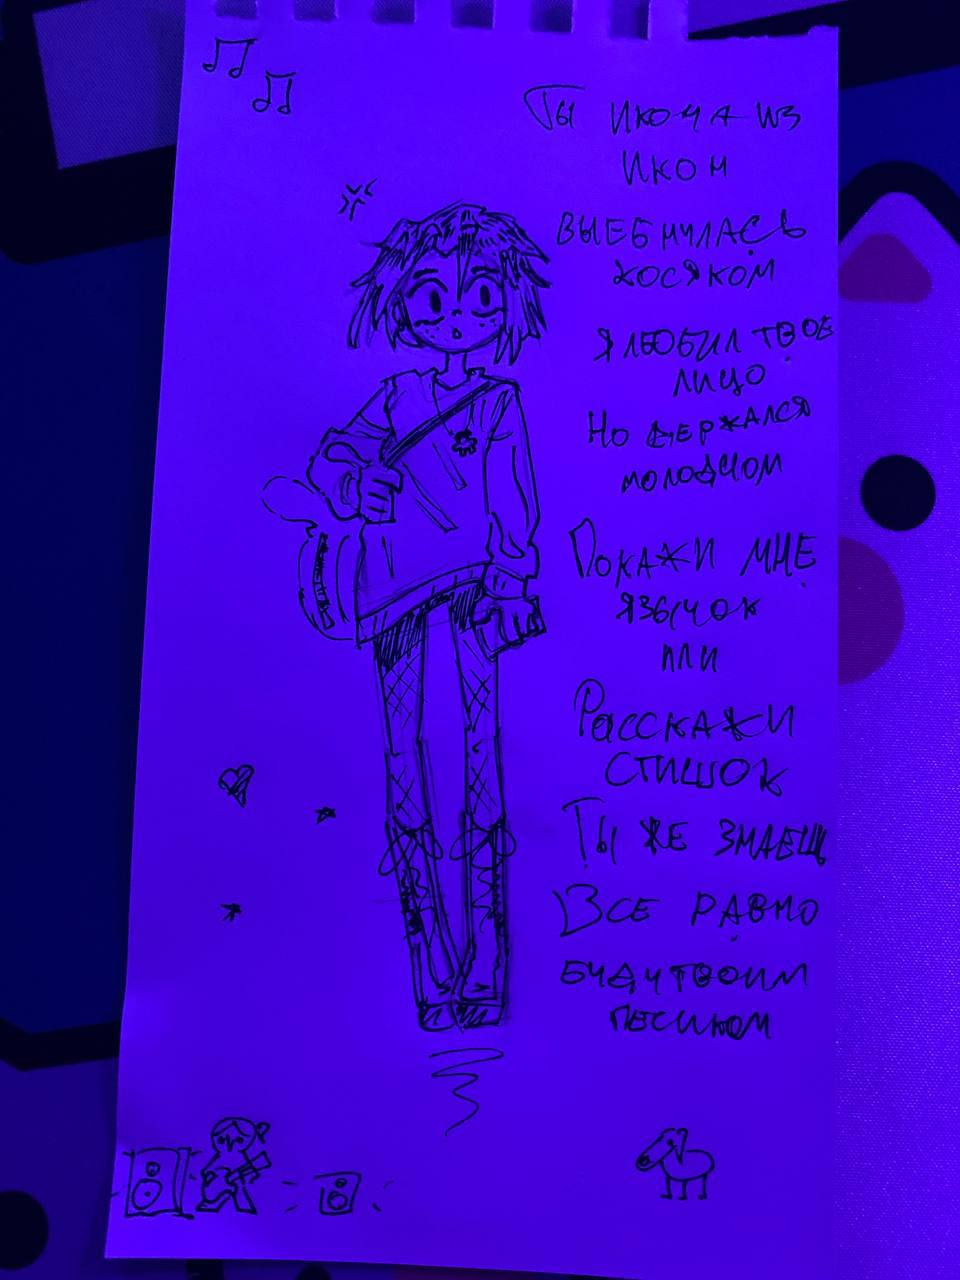 Ты икона из
икон
выебнулась
косяком
я любил твое
лицо
Но держался
молодцом
Покажи мне
язычок
или
Расскажи
стишок
Ты же знаешь
Все равно
буду твоим
песиком